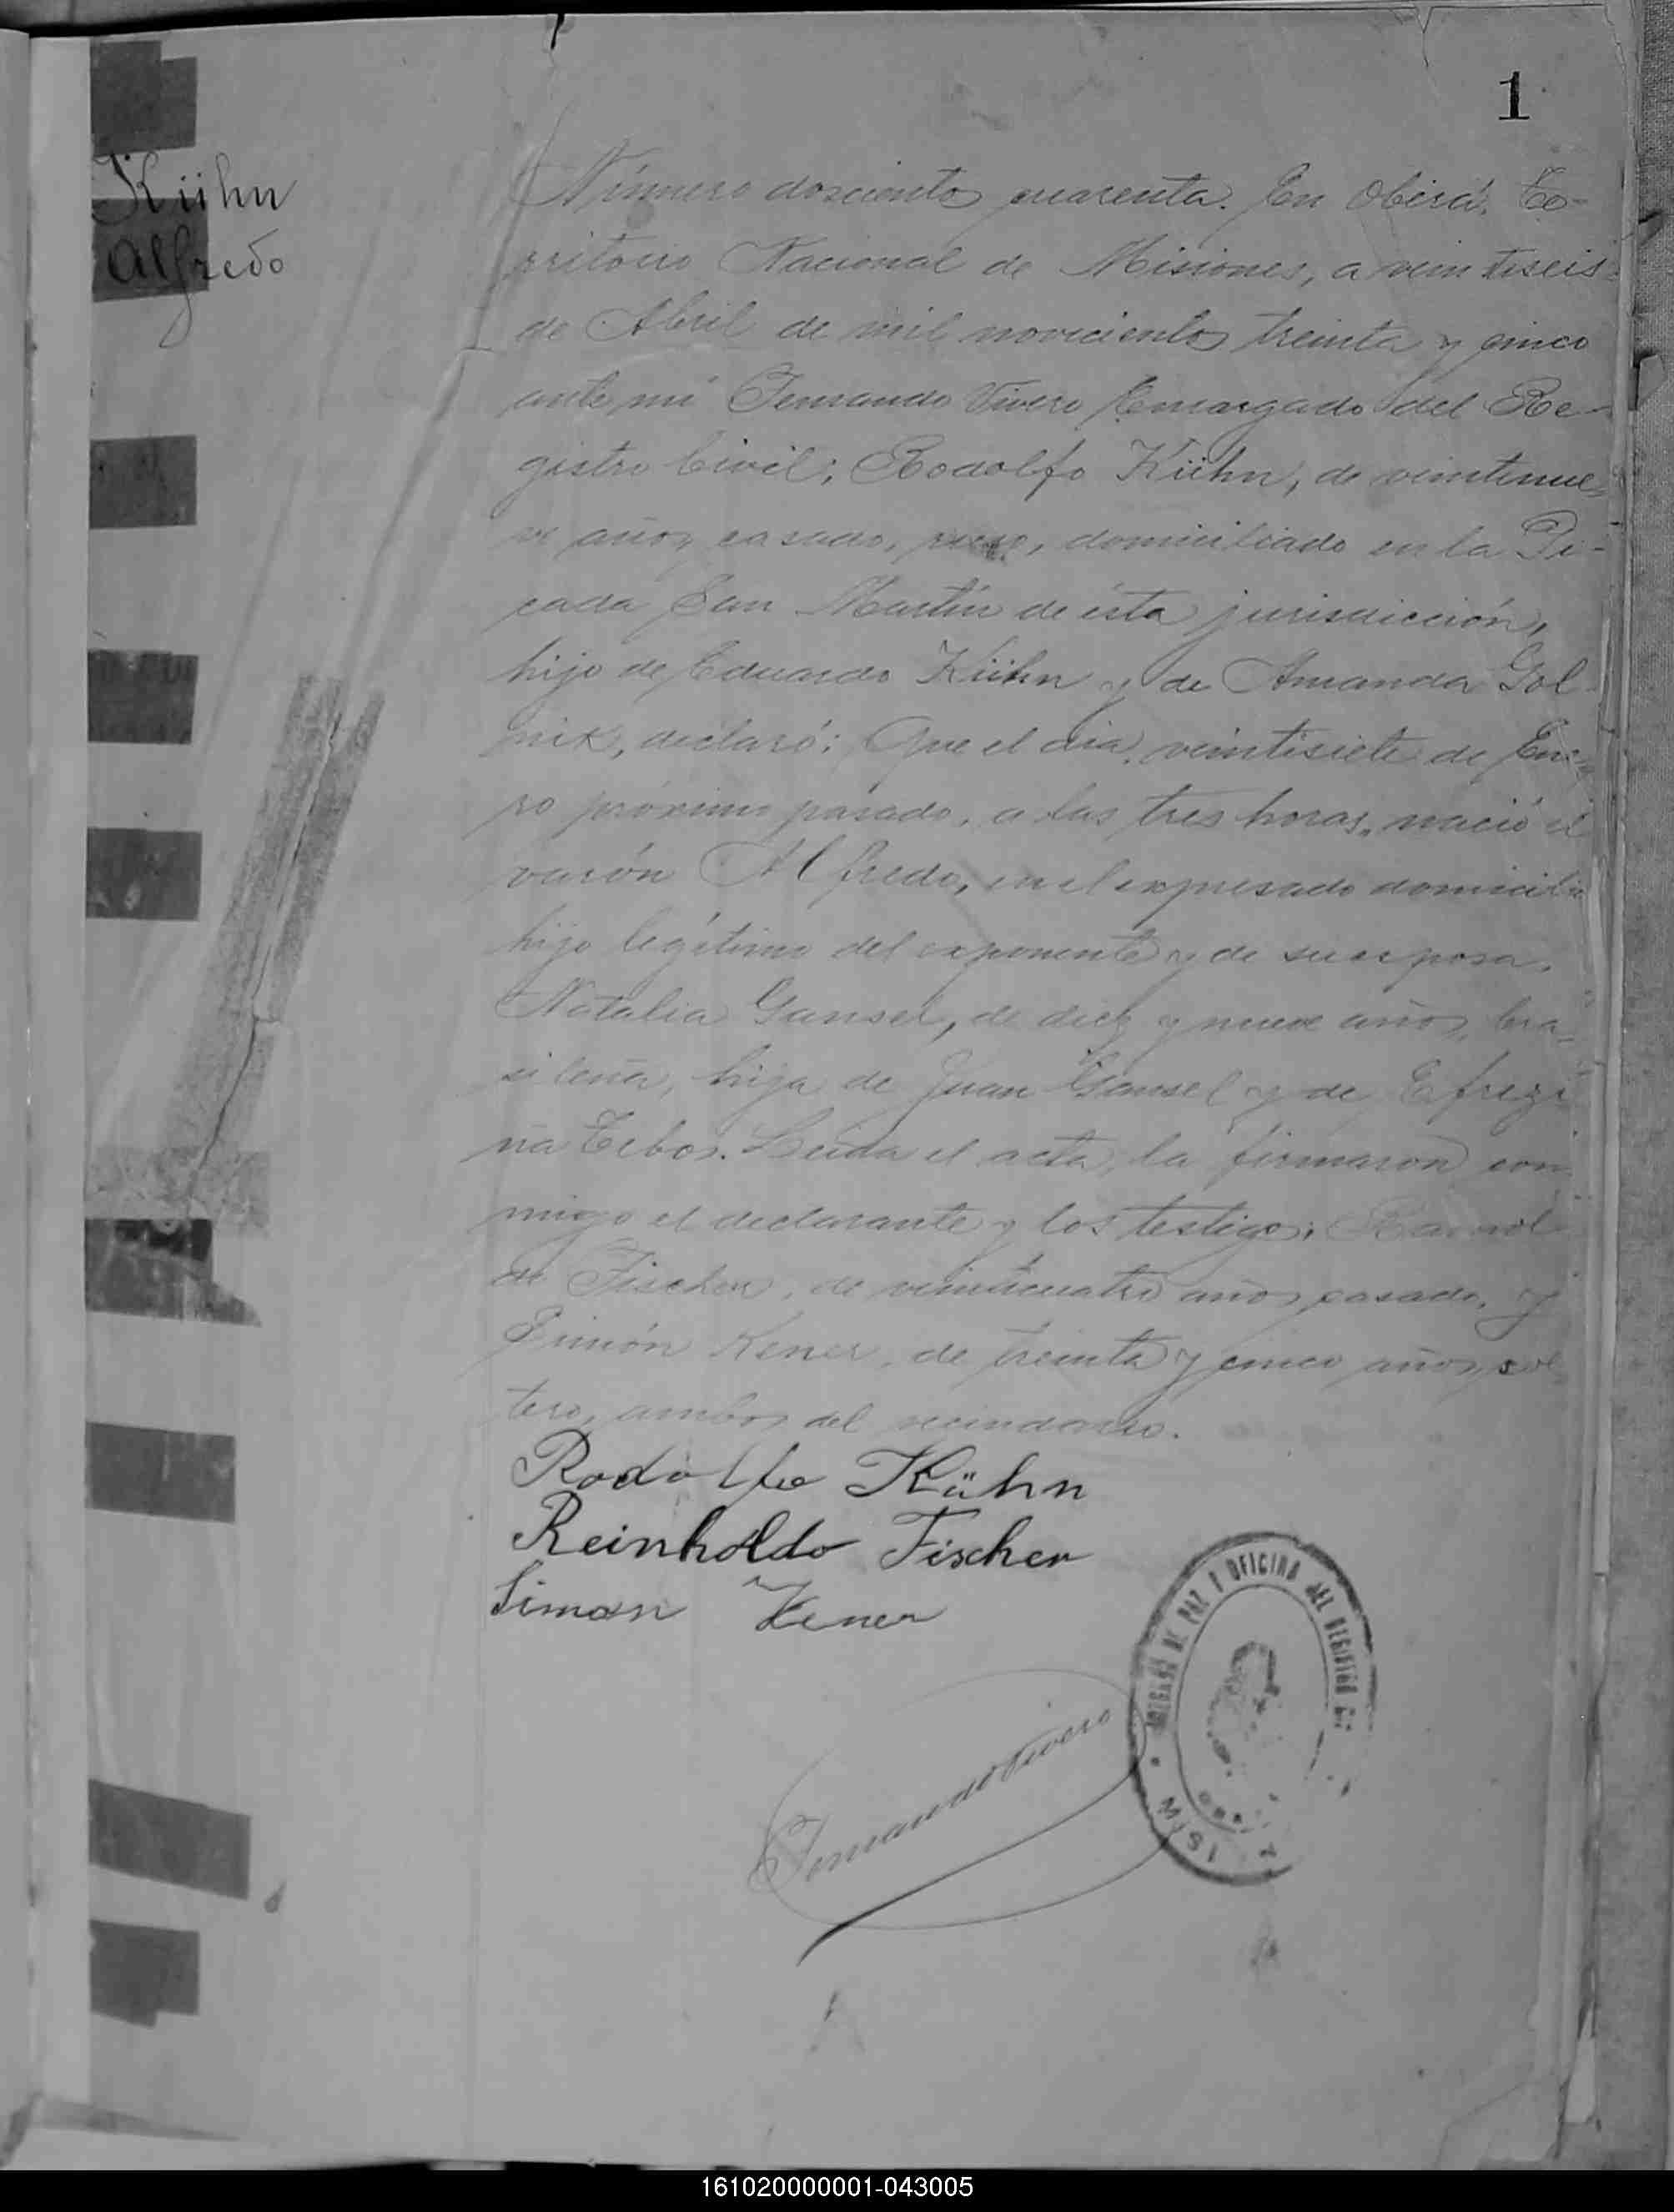 1
Kühn
Alfredo
Número doscientos cuarenta. En Oberá, Te-
rritorio Nacional de Misiones, a veintiseis
de Abril de mil novecientos treinta y cinco
ante mí Fernando Vivero Encargado del Re-
gistro Civil; Rodolfo Kühn, de veintinue-
ve años, casado, ruso, domiciliado en la Pi-
cada San Martín de ésta jurisdicción,
hijo de Eduardo Kühn y de Amanda Gol-
nik, declaró: Que el día veintisiete de Ene-
ro próximo pasado, a las tres horas, nació el
varón Alfredo, en el expresado domicilio
hijo legítimo del exponente y de su esposa,
Natalia Gansel, de diez y nueve años, bra-
sileña, hija de Juan Gansel y de
Leida el acta, la firmaron con-
migo el declarante y los testigos:
do Fischer, de veinticuatro años, casado, y
Simón Kener, de treinta y cinco años, sol-
tero, ambos del vecindario.
Rodolfo Kühn
Reinholdo Fischer
Simon Kener
Fernando Vivero
JUZGADO DE PAZ Y OFICINA DEL REGISTRO
161020000001-043005